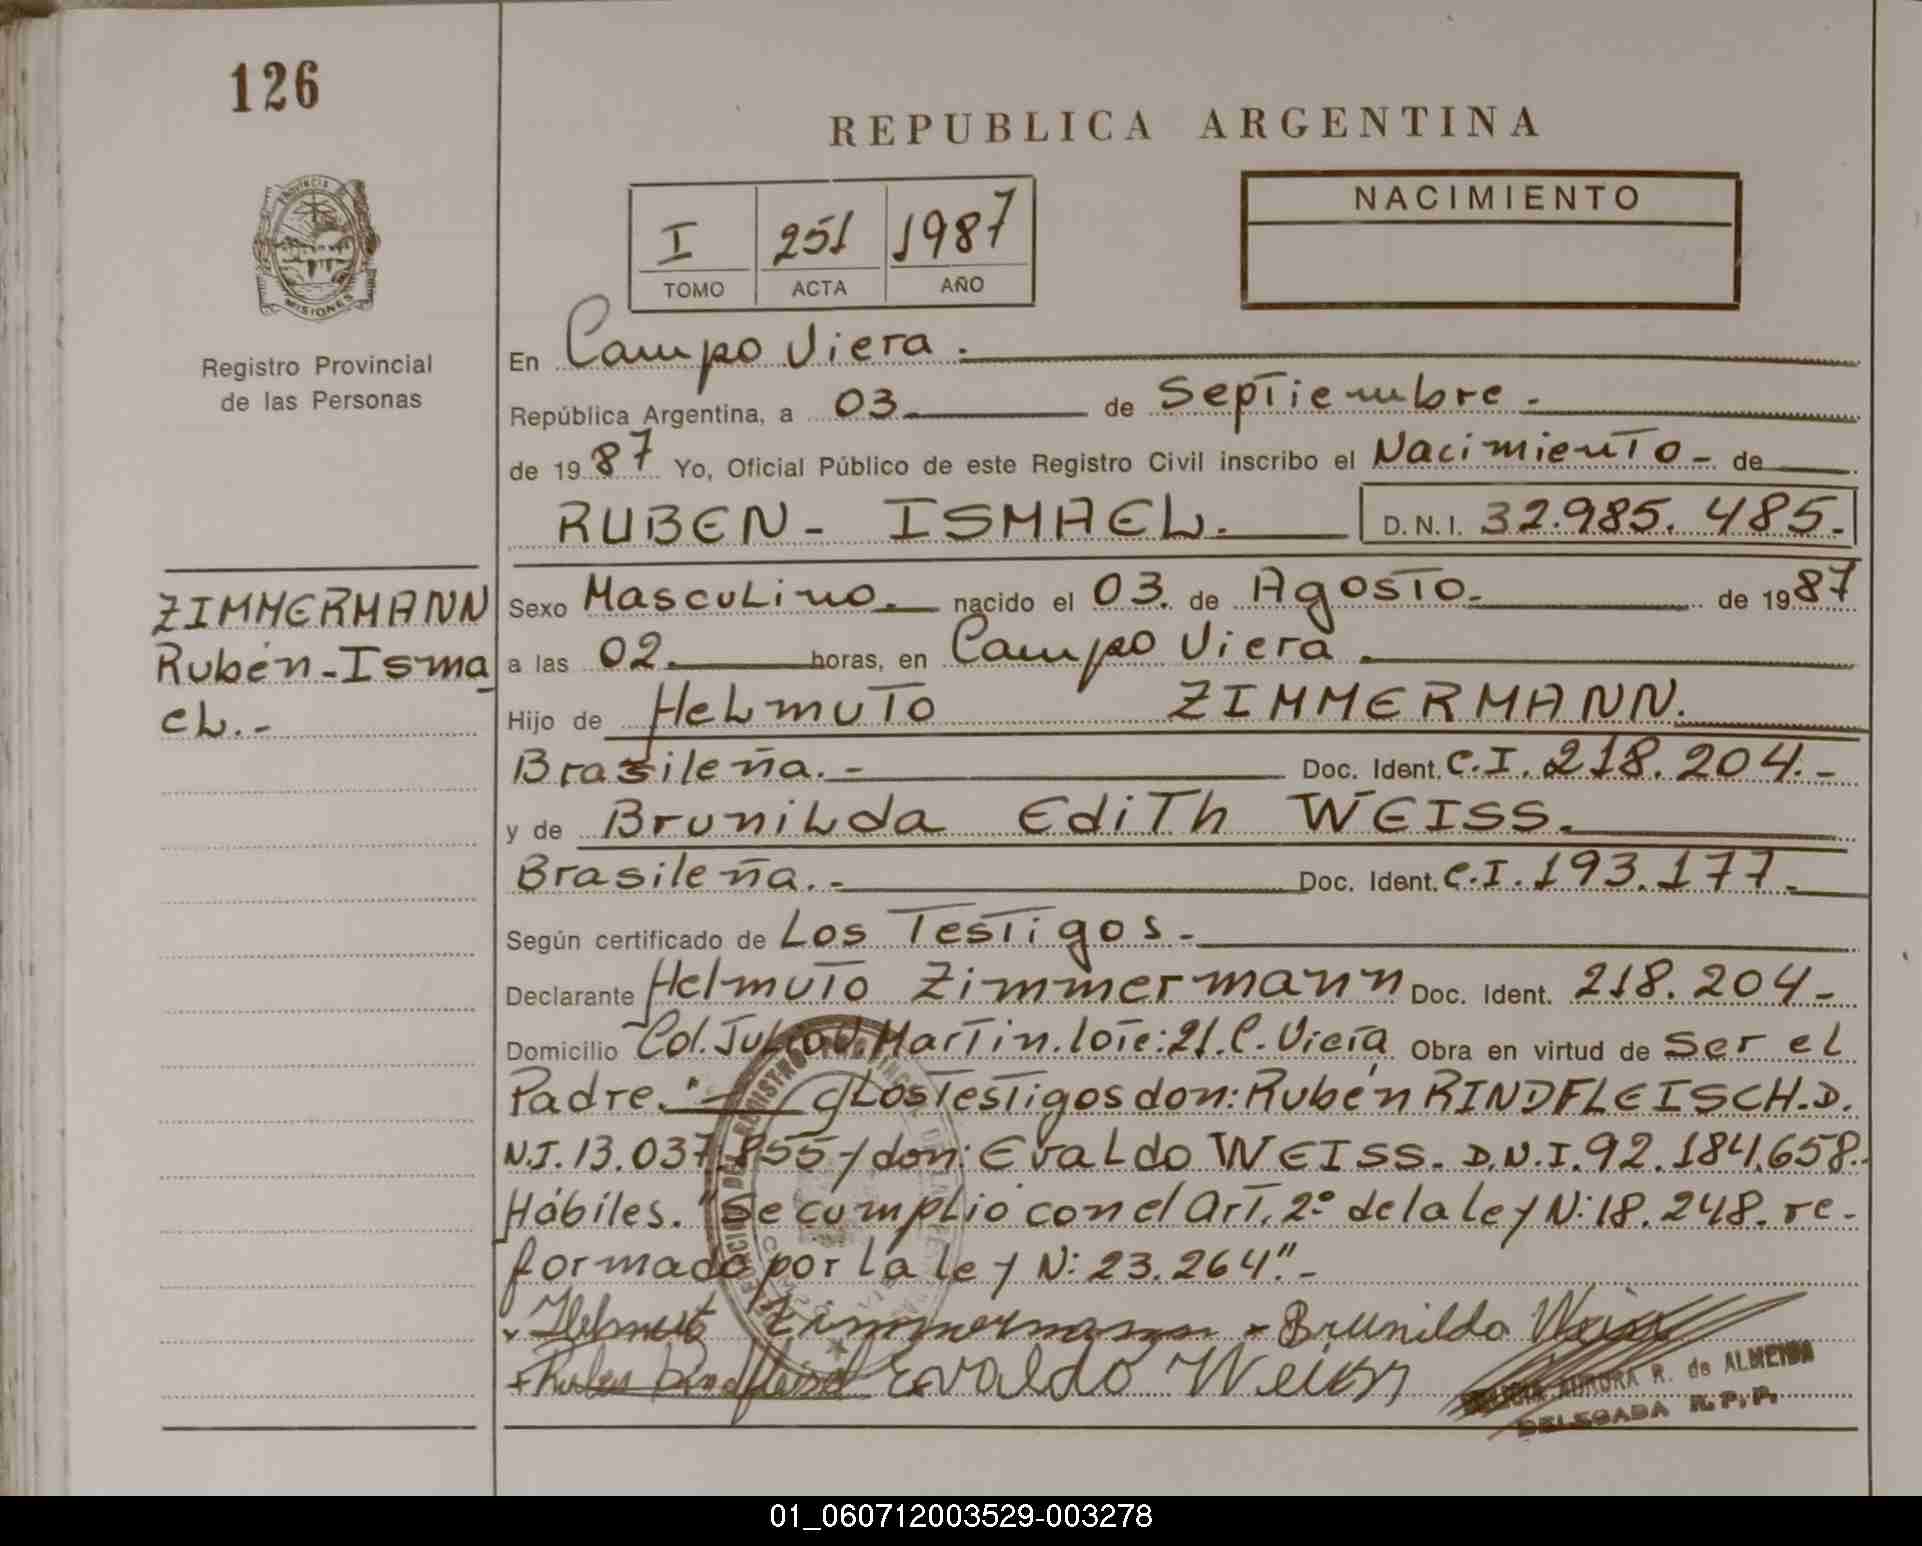 126
REPUBLICA ARGENTINA
NACIMIENTO
I 251 1987
TOMO ACTA AÑO
Registro Provincial
de las Personas
PROVINCIA
MISIONES
ZIMMERMANN
Rubén-Isma
eL.-
En Campo Viera.
República Argentina, a 03 de Septiembre.
de 1987 Yo, Oficial Público de este Registro Civil inscribo el Nacimiento - de
RUBEN - ISMAEL. D.N.I. 32.985.485.-
Sexo Masculino. nacido el 03. de Agosto. de 1987
a las 02. horas, en Campo Viera.
Hijo de Helmuto ZIMMERMANN.
Brasileña.- Doc. Ident. C.I. 218.204.-
y de Brunilda Edith WEISS.
Brasileña.- Doc. Ident. C.I. 193.177.-
Según certificado de Los Testigos.-
Declarante Helmuto Zimmermann Doc. Ident. 218.204-
Domicilio Col. Julio U. Martin. lote: 21. C. Viera Obra en virtud de Ser el
Padre."- Los Testigos don: Rubén RINDFLEISCH. D.
N.I. 13.037.855 y don: Evaldo WEISS. D.N.I. 92.184.658.
Hábiles. "Se cumplio con el Art. 2º de la ley N: 18.248. re-
formado por la ley N: 23.264".-
Helmut Zimmermann Brunildo Weiss
Evaldo Weiss
AURORA R. de ALMEIDA
DELEGADA R.P.P.
01_060712003529-003278